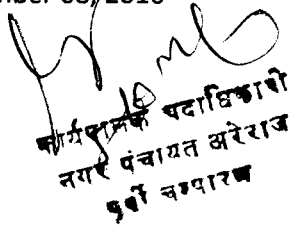 08, 2016
कार्यपालक पदाधिकारी
नगर पंचायत अरेराज
पूर्वी चम्पारण